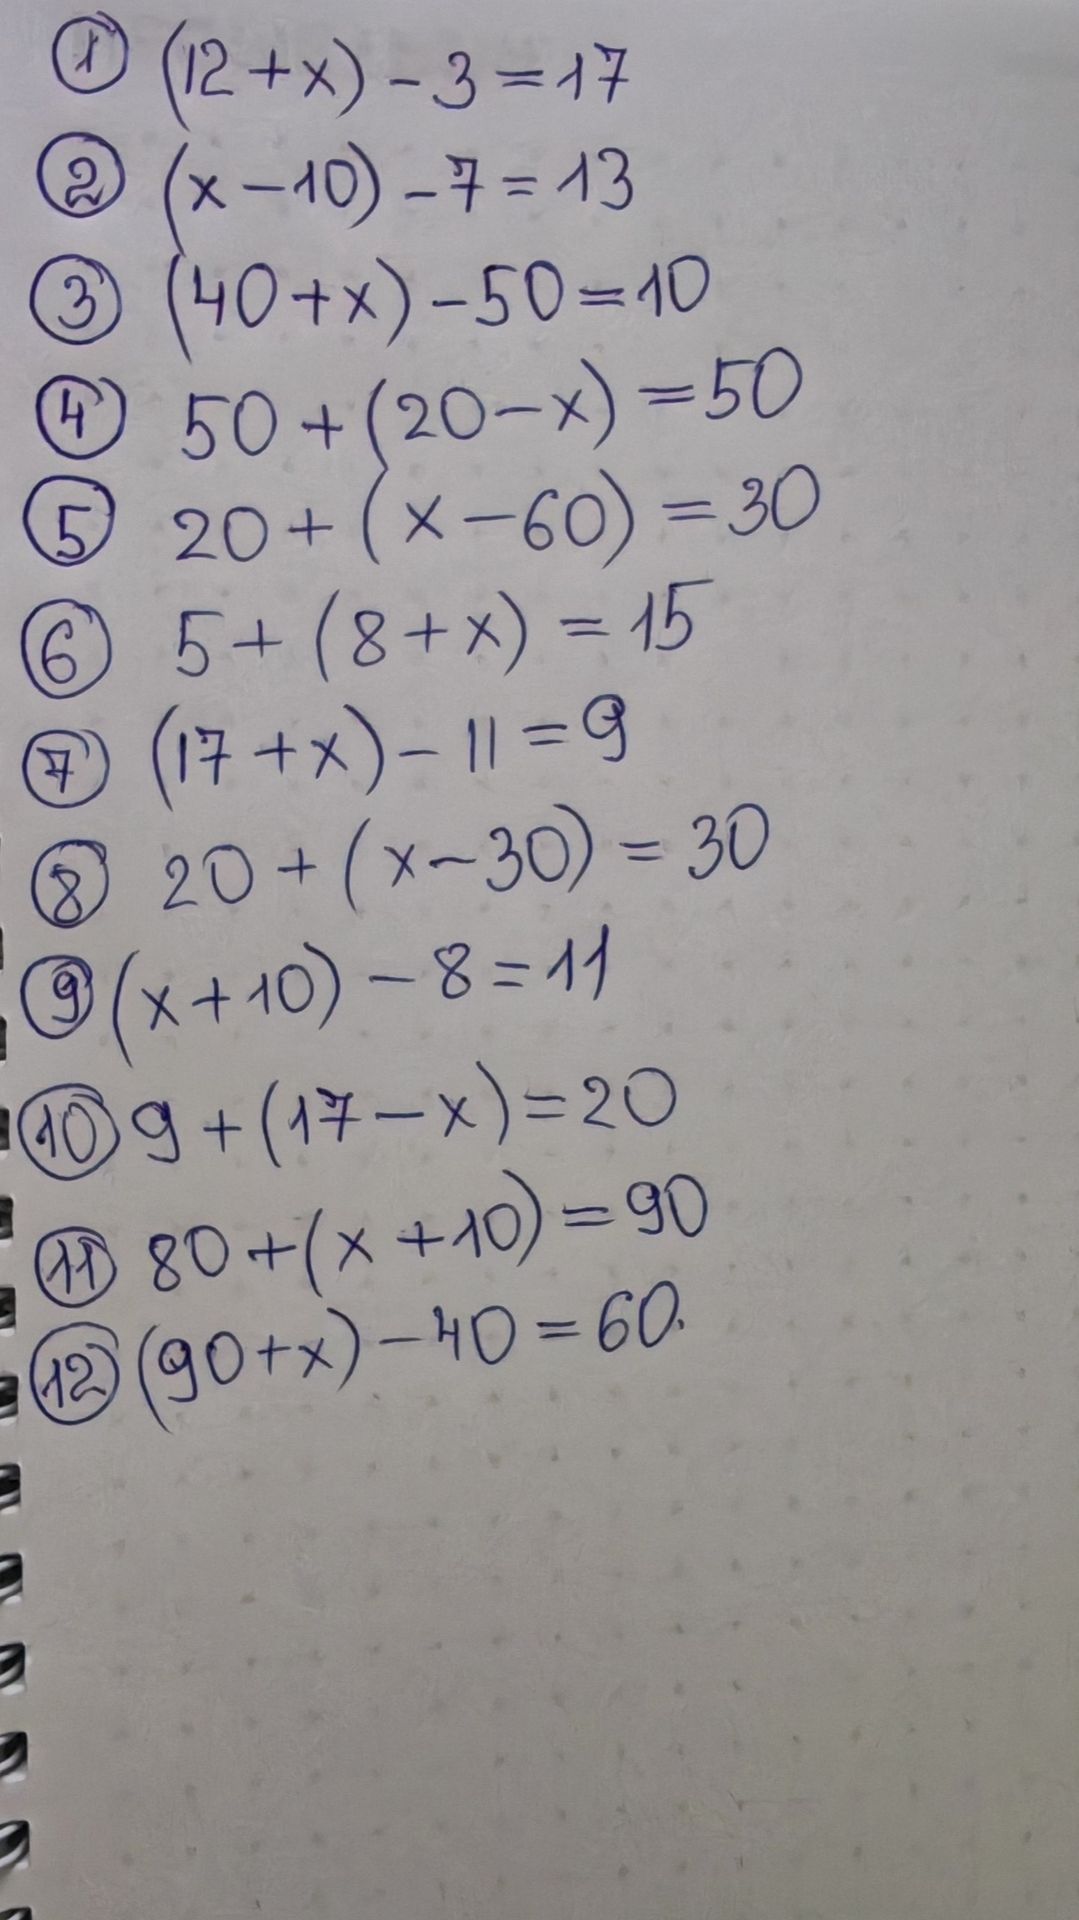 ① (12+x)-3=17
② (x-10)-7=13
③ (40+x)-50=10
④ 50+(20-x)=50
⑤ 20+(x-60)=30
⑥ 5+(8+x)=15
⑦ (17+x)-11=9
⑧ 20+(x-30)=30
⑨ (x+10)-8=11
⑩ 9+(17-x)=20
⑪ 80+(x+10)=90
⑫ (90+x)-40=60.